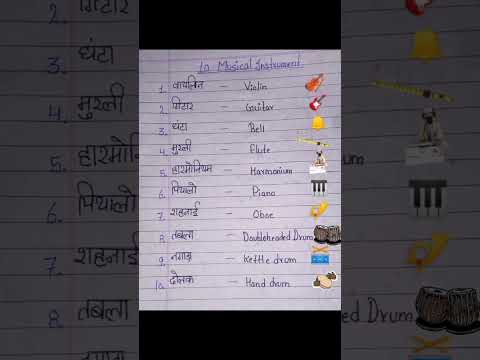 10 Musical Instrument.
1. वायलिन — Violin
2. गिटार — Guitar
3. घंटा — Bell
4. मुरली — Flute
5. हारमोनियम — Harmonium
6. पियानो — Piano
7. शहनाई — Oboe
8. तबला — Doubleheaded Drum
9. — Kettle drum
10. ढोलक — Hand drum
2. गिटार
3. घंटा
4. मुरली
5. हारमोनि
6. पियानो
7. शहनाई
8. तबला
aded Drum